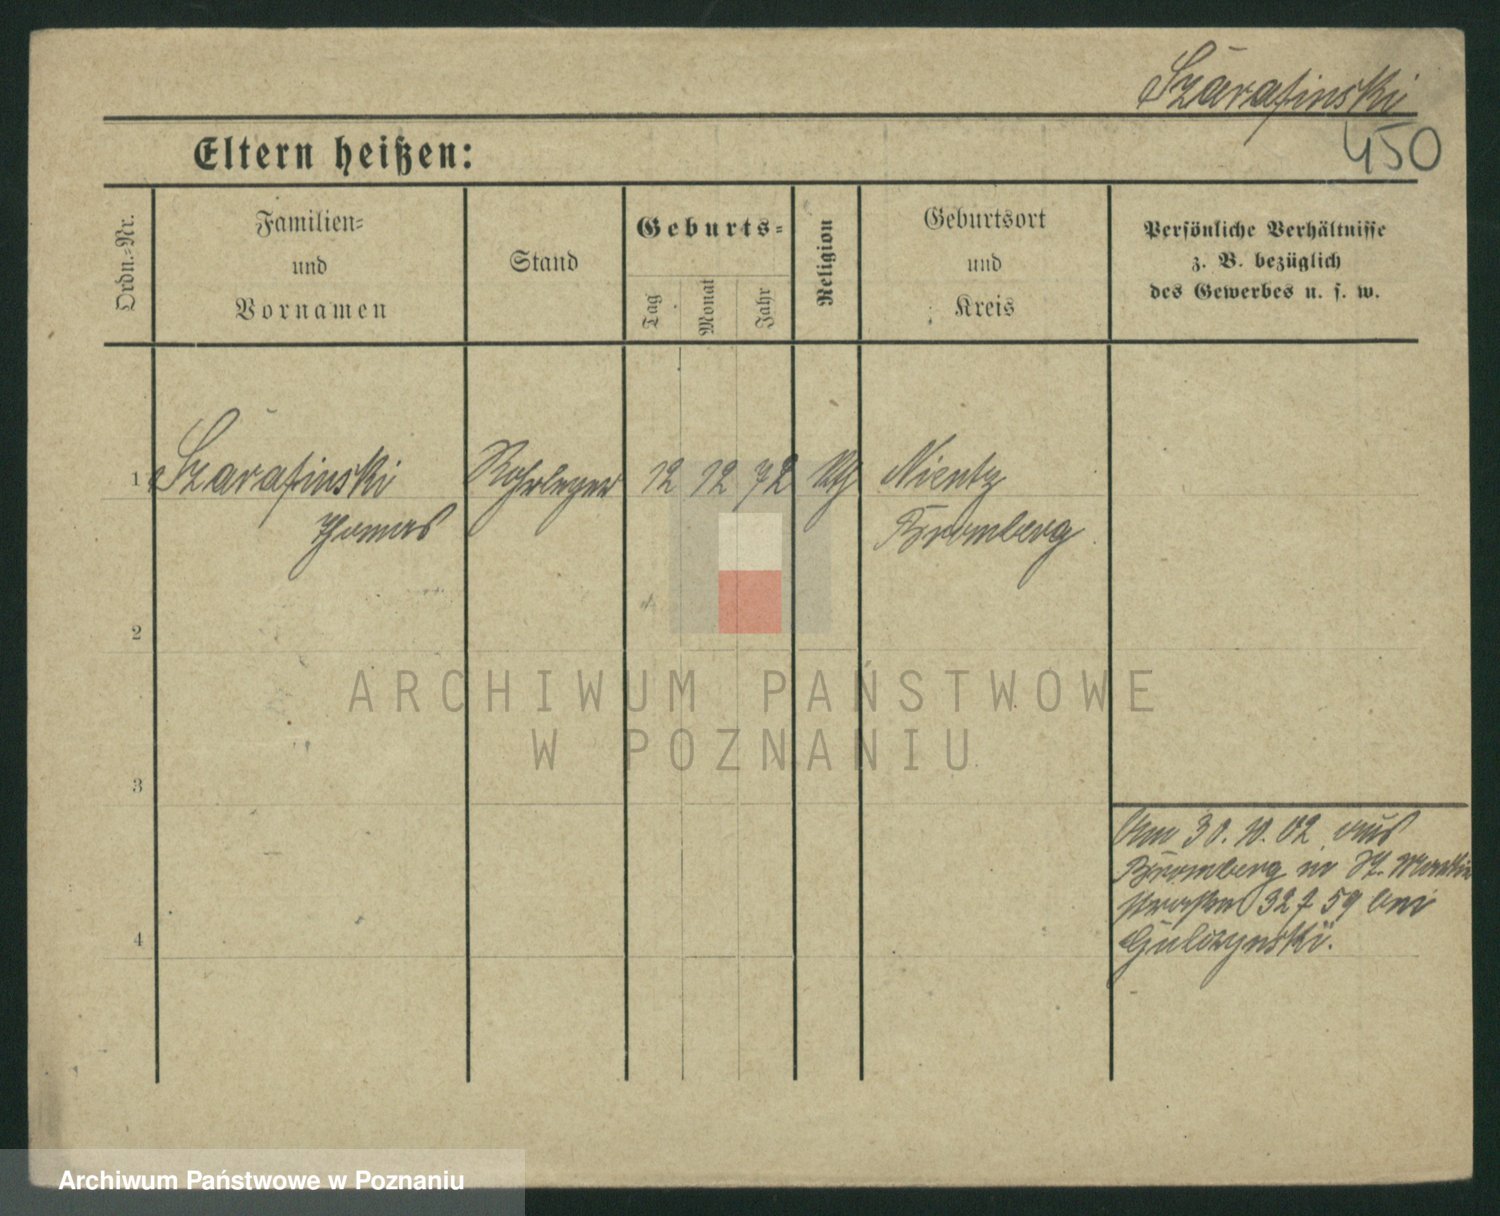 Szarafinski
450
Eltern heißen:
Ordn.-Nr.
Familien-
und
Vornamen
Stand
Geburts-
Tag
Monat
Jahr
Religion
Geburtsort
und
Kreis
Persönliche Verhältnisse
z. B. bezüglich
des Gewerbes u. s. w.
1 Szarafinski Rohrleger 12 12 72 Nientz
Thomas Bromberg
2
ARCHIWUM PAŃSTWOWE
W POZNANIU
3
Am 30. 10. 02 aus
Bromberg in St. Martin
straße 32 59 bei
4
Gulczynski.
Archiwum Państwowe w Poznaniu